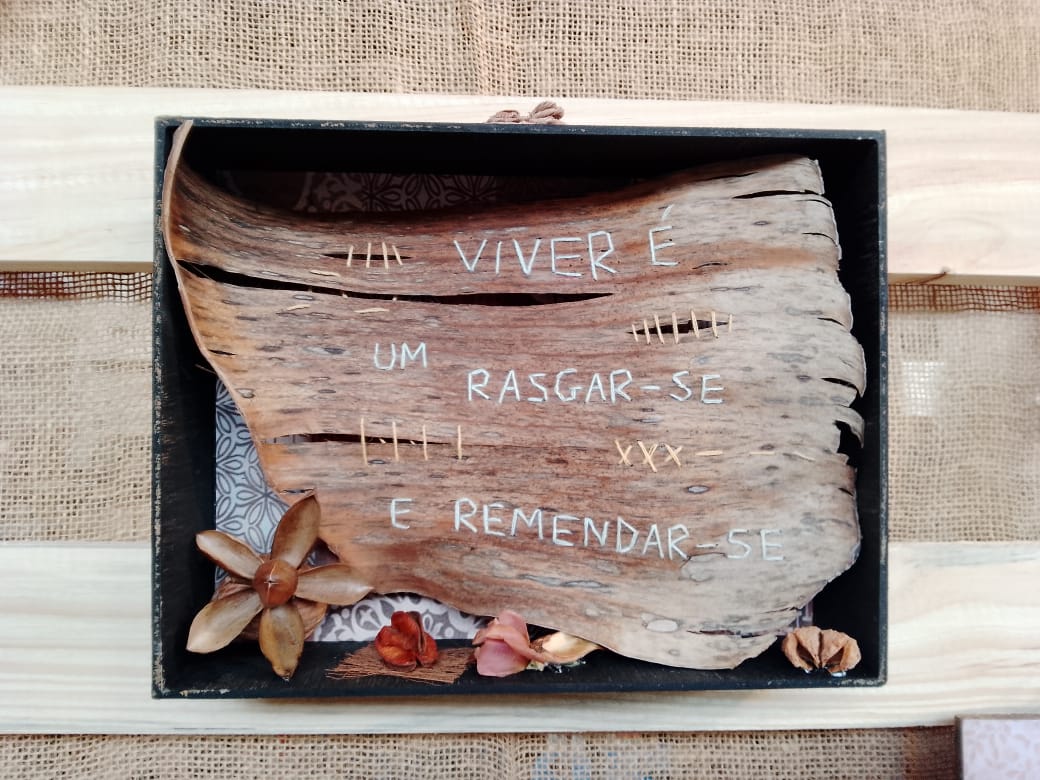 VIVER É
UM
RASGAR-SE
E REMENDAR-SE